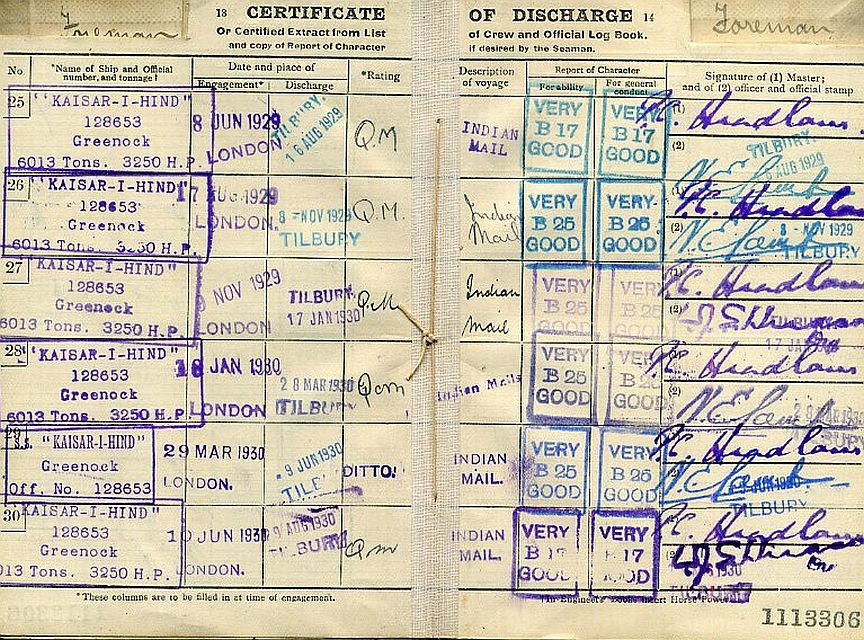 13 CERTIFICATE OF DISCHARGE 14
Foreman
Foreman
Or Certified Extract from List of Crew and Official Log Book.
and copy of Report of Character if desired by the Seaman.
No *Name of Ship and Official number, and tonnage† Date and place of Engagement* Discharge *Rating Description of voyage Report of Character For ability For general conduct Signature of (1) Master; and of (2) officer and official stamp
25 "KAISAR-I-HIND" 8 JUN 1929 TILBURY. VERY VERY (1)
128653 16 AUG 1929 Q.M INDIAN B 17 B 17
Greenock LONDON MAIL GOOD GOOD (2) TILBURY.
6013 Tons. 3250 H.P. AUG 1929
26 "KAISAR-I-HIND" 17 AUG 1929 VERY VERY (1)
128653 8 - NOV 1929 Q.M. Indian B 25 B 25
Greenock LONDON. TILBURY Mail GOOD GOOD (2) 8 - NOV 1929
6013 Tons. 3250 H.P. TILBURY
27 "KAISAR-I-HIND" NOV 1929 VERY VERY (1)
128653 TILBURY. Q.M Indian B 25 B 25
Greenock LONDON 17 JAN 1930 Mail GOOD GOOD (2)
6013 Tons. 3250 H.P. 17 JAN
28 "KAISAR-I-HIND" 18 JAN 1930 VERY VERY
128653 28 MAR 1930 Qm Indian Mails B 25 B 25
Greenock LONDON TILBURY GOOD GOOD
6013 Tons. 3250 H.P.
29 S.S. "KAISAR-I-HIND" 29 MAR 1930 VERY VERY
Greenock 9 JUN 1930 DITTO. INDIAN B 25 B 25
Off. No. 128653 LONDON. MAIL. GOOD GOOD JUN 1930
TILBURY
30 KAISAR-I-HIND" 10 JUN 1930 9 AUG 1930 VERY VERY
128653 TILBURY Qm INDIAN B 17 B 17
Greenock LONDON. MAIL. GOOD GOOD
6013 Tons. 3250 H.P.
*These columns are to be filled in at time of engagement. †In Engineers' Books insert Horse Power.
1113306